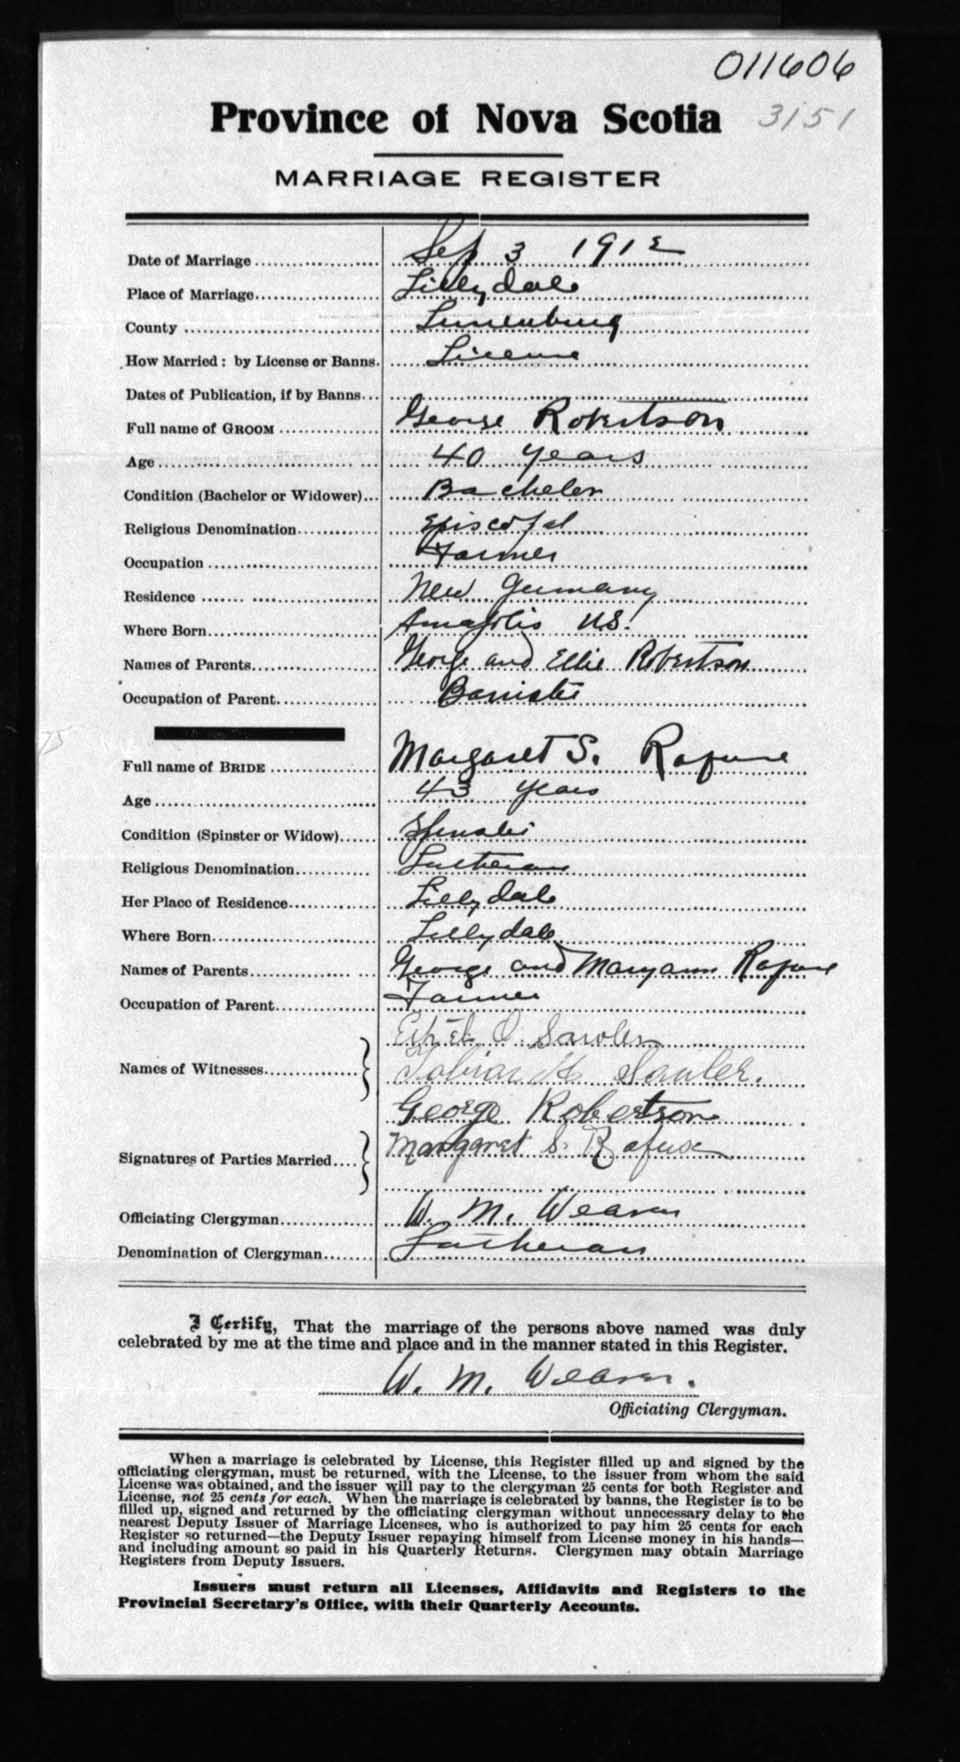 011606
Province of Nova Scotia 3151
MARRIAGE REGISTER
Date of Marriage Sep 3 1912
Place of Marriage Lillydale
County Lunenburg
How Married: by License or Banns. License
Dates of Publication, if by Banns
Full name of GROOM George Robertson
Age 40 years
Condition (Bachelor or Widower) Bachelor
Religious Denomination Episcopal
Occupation Farmer
Residence New Germany
Where Born Annapolis US.
Names of Parents George and Ellie Robertson
Occupation of Parent Barrister
75
Full name of BRIDE Margaret S. Rafuse
Age 43 years
Condition (Spinster or Widow) Spinster
Religious Denomination Lutheran
Her Place of Residence Lillydale
Where Born Lillydale
Names of Parents George and Maryann Rafuse
Occupation of Parent Farmer
O Sarolen
Names of Witnesses Tobias H Sauler.
George Robertson
Signatures of Parties Married Margaret S. Rafuse
Officiating Clergyman W. M. Weaver
Denomination of Clergyman Lutheran
I Certify, That the marriage of the persons above named was duly
celebrated by me at the time and place and in the manner stated in this Register.
W. M. Weaver.
Officiating Clergyman.
When a marriage is celebrated by License, this Register filled up and signed by the
officiating clergyman, must be returned, with the License, to the issuer from whom the said
License was obtained, and the issuer will pay to the clergyman 25 cents for both Register and
License, not 25 cents for each. When the marriage is celebrated by banns, the Register is to be
filled up, signed and returned by the officiating clergyman without unnecessary delay to the
nearest Deputy Issuer of Marriage Licenses, who is authorized to pay him 25 cents for each
Register so returned—the Deputy Issuer repaying himself from License money in his hands—
and including amount so paid in his Quarterly Returns. Clergymen may obtain Marriage
Registers from Deputy Issuers.
Issuers must return all Licenses, Affidavits and Registers to the
Provincial Secretary's Office, with their Quarterly Accounts.